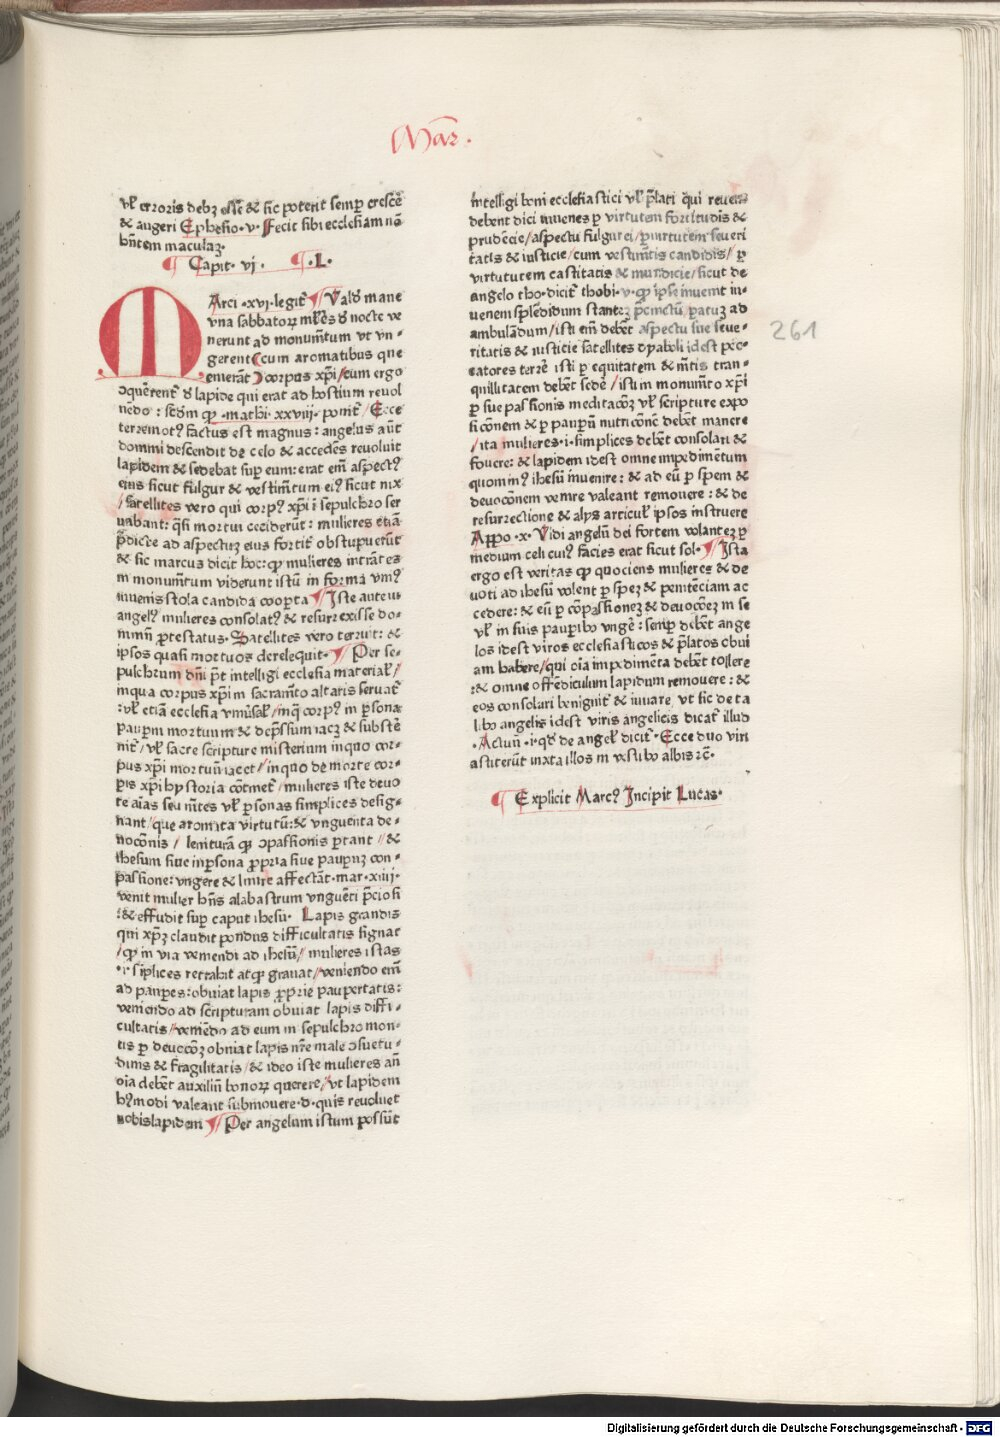 Mar̄.
vl̄ erroris debꝫ esse̅ & sic poterit semꝑ cresce̅
& augeri Ephesio·v· Fecit sibi ecclesiam no̅
bn̄tem maculaꝫ·
¶ Capit· vj · ¶ ·L·
MArci ·xvj·legit᷑ ¶ Valdꝫ mane
vna sabbatoꝝ ml̄res dꝫ nocte ve
nerunt ad monumn̄tum vt vn-
gerent (cum aromatibus que
emerāt) corpus xp̄i/cum ergo
ꝯquērent᷑ dꝫ lapide qui erat ad hostium reuol
uendo : scd̄m ꝙ ·mathi·xxviij·ponit᷑/Ecce
terremotꝰ factus est magnus : angelus aūt
domini descendit de celo & accedēs reuoluit
lapidem & sedebat suꝑ eum: erat em̄ aspectꝰ
eius sicut fulgur & vestimn̄tum eiꝰ sicut nix
/satellites vero qui corpꝰ xp̄i ī sepulchro ser
uabant: q̄si mortui ceciderūt: mulieres etiā
p̄dicte ad aspectuꝫ eius fortit᷑ obstupuerūt
& sic marcus dicit hoc: ꝙ mulieres intrātes
in monumn̄tum viderunt istū in forma vniꝰ
iuuenis stola candida cooperta ¶ Iste autem
angelꝰ mulieres consolatꝰ & resurrexisse do-
minū ꝓtestatus· Satellites vero terruit: &
ipsos quasi mortuos derelequit· ¶ Per se-
pulchrum dn̄i pn̄t intelligi ecclesia material᷑/
in qua corpus xp̄i in sacramn̄to altaris seruat᷑
: vl̄ etiā ecclesia vniuersal᷑/ in q̄ corpꝰ in ꝑsona
pauꝑm mortuum & dep̄ssum iacꝫ & substē
nit᷑/ vl̄ sacre scripture misterium in quo cor-
pus xp̄i mortuū iacet/ in quo de morte cor-
ꝑis xp̄i hystoria cōtinet᷑/ mulieres iste deuo
te aīas seu mētes vl̄ ꝑsonas simplices desig-
nant/ que aromata virtutū: & vnguenta de-
uocōnis/ lenitura ꝙ ꝯpassionis portant// &
ihesum siue in ꝑsona ꝓpria siue pauꝑuꝫ con-
passione: vngere & linire affectāt·mar·xiiij·
venit mulier hn̄s alabastrum vnguēti p̄ciosi
:& effudit suꝑ caput ihesu· Lapis grandis
qui xp̄ꝫ claudit pondus difficultatis signat
/ꝙ in via veniendi ad ihesū/ mulieres istas
·i· sīplices retrahit atꝙ grauat/ veniendo em̄
ad pauꝑes: obuiat lapis ꝓprie paupertatis:
veniendo ad scripturam obuiat lapis diffi-
cultatis/ veniēdo ad eum in sepulchro mon-
tis ꝑ deuocōꝫ obuiat lapis nr̄e male ꝯsuetu-
dinis & fragilitatis/ & ideo iste mulieres an̄
oīa debēt auxiliū bonoꝝ querere/ vt lapidem
hꝰmodi valeant submouere·d·quis reuoluet
nobis lapidem ¶ Per angelum istum possūt
intelligi boni ecclesiastici vl̄ p̄lati qui reuera
debent dici iuuenes ꝑ virtutem fortitudīs &
prudēcie/ aspectu fulgurei/ ꝑ virtutem seueri
tatis & iusticie/ cum vestimn̄tis candidis/ ꝑ
virtututem castitatis & mundicie/ sicut de
angelo tho·dicit᷑ thobi·v·ꝙ ipse inuenit iu-
uenem splendidum stanteꝫ p̄cinctū/ paratuꝫ ad
ambulādum/ isti em̄ debēt aspectu sue seue-
ritatis & iusticie satellites dyaboli idest pec-
catores terrē isti ꝑ equitatem & mn̄tis tran-
quillitatem debēt sedē/ isti in monumn̄to xp̄i
ꝑ sue passionis meditacōꝫ vl̄ scripture expo
sicōnem & ꝑ pauꝑū nutricōnē debēt manere
/ita mulieres·i·simplices debēt consolari &
fouere: & lapidem idest omne impedimētum
quominꝰ ihesū inuenire: & ad eū ꝑ spem &
deuocōnem venire valeant remouere: & de
resurrectione & alijs articul᷑ ipsos instruere
Appo·x· Vidi angelū dei fortem volanteꝫ ꝑ
medium celi cuiꝰ facies erat sicut sol· ¶ Ista
ergo est veritas ꝙ quociens mulieres & de
uoti ad ihesū volent ꝑ speꝫ & penitēciam ac
cedere: & eū ꝑ cōpassioneꝫ & deuocōeꝫ in se
vl̄ in suis pauꝑibꝰ vngē: semꝑ debēt ange
los idest viros ecclesiasticos & p̄latos obui
am habere/ qui oīa impedimēta debēt tollere
:& omne offēdiculum lapidum remouere: &
eos consolari benignit᷑ & iuuare, vt sic de ta
libꝰ angelis idest viris angelicis dicat᷑ illud
·Actuū·i·qd̄ de angel᷑ dicit᷑· Ecce duo viri
astiterūt iuxta illos in vestibꝰ albis ꝛc̄·
¶ Explicit Marcꝰ Incipit Lucas·
261
Digitalisierung gefördert durch die Deutsche Forschungsgemeinschaft · DFG